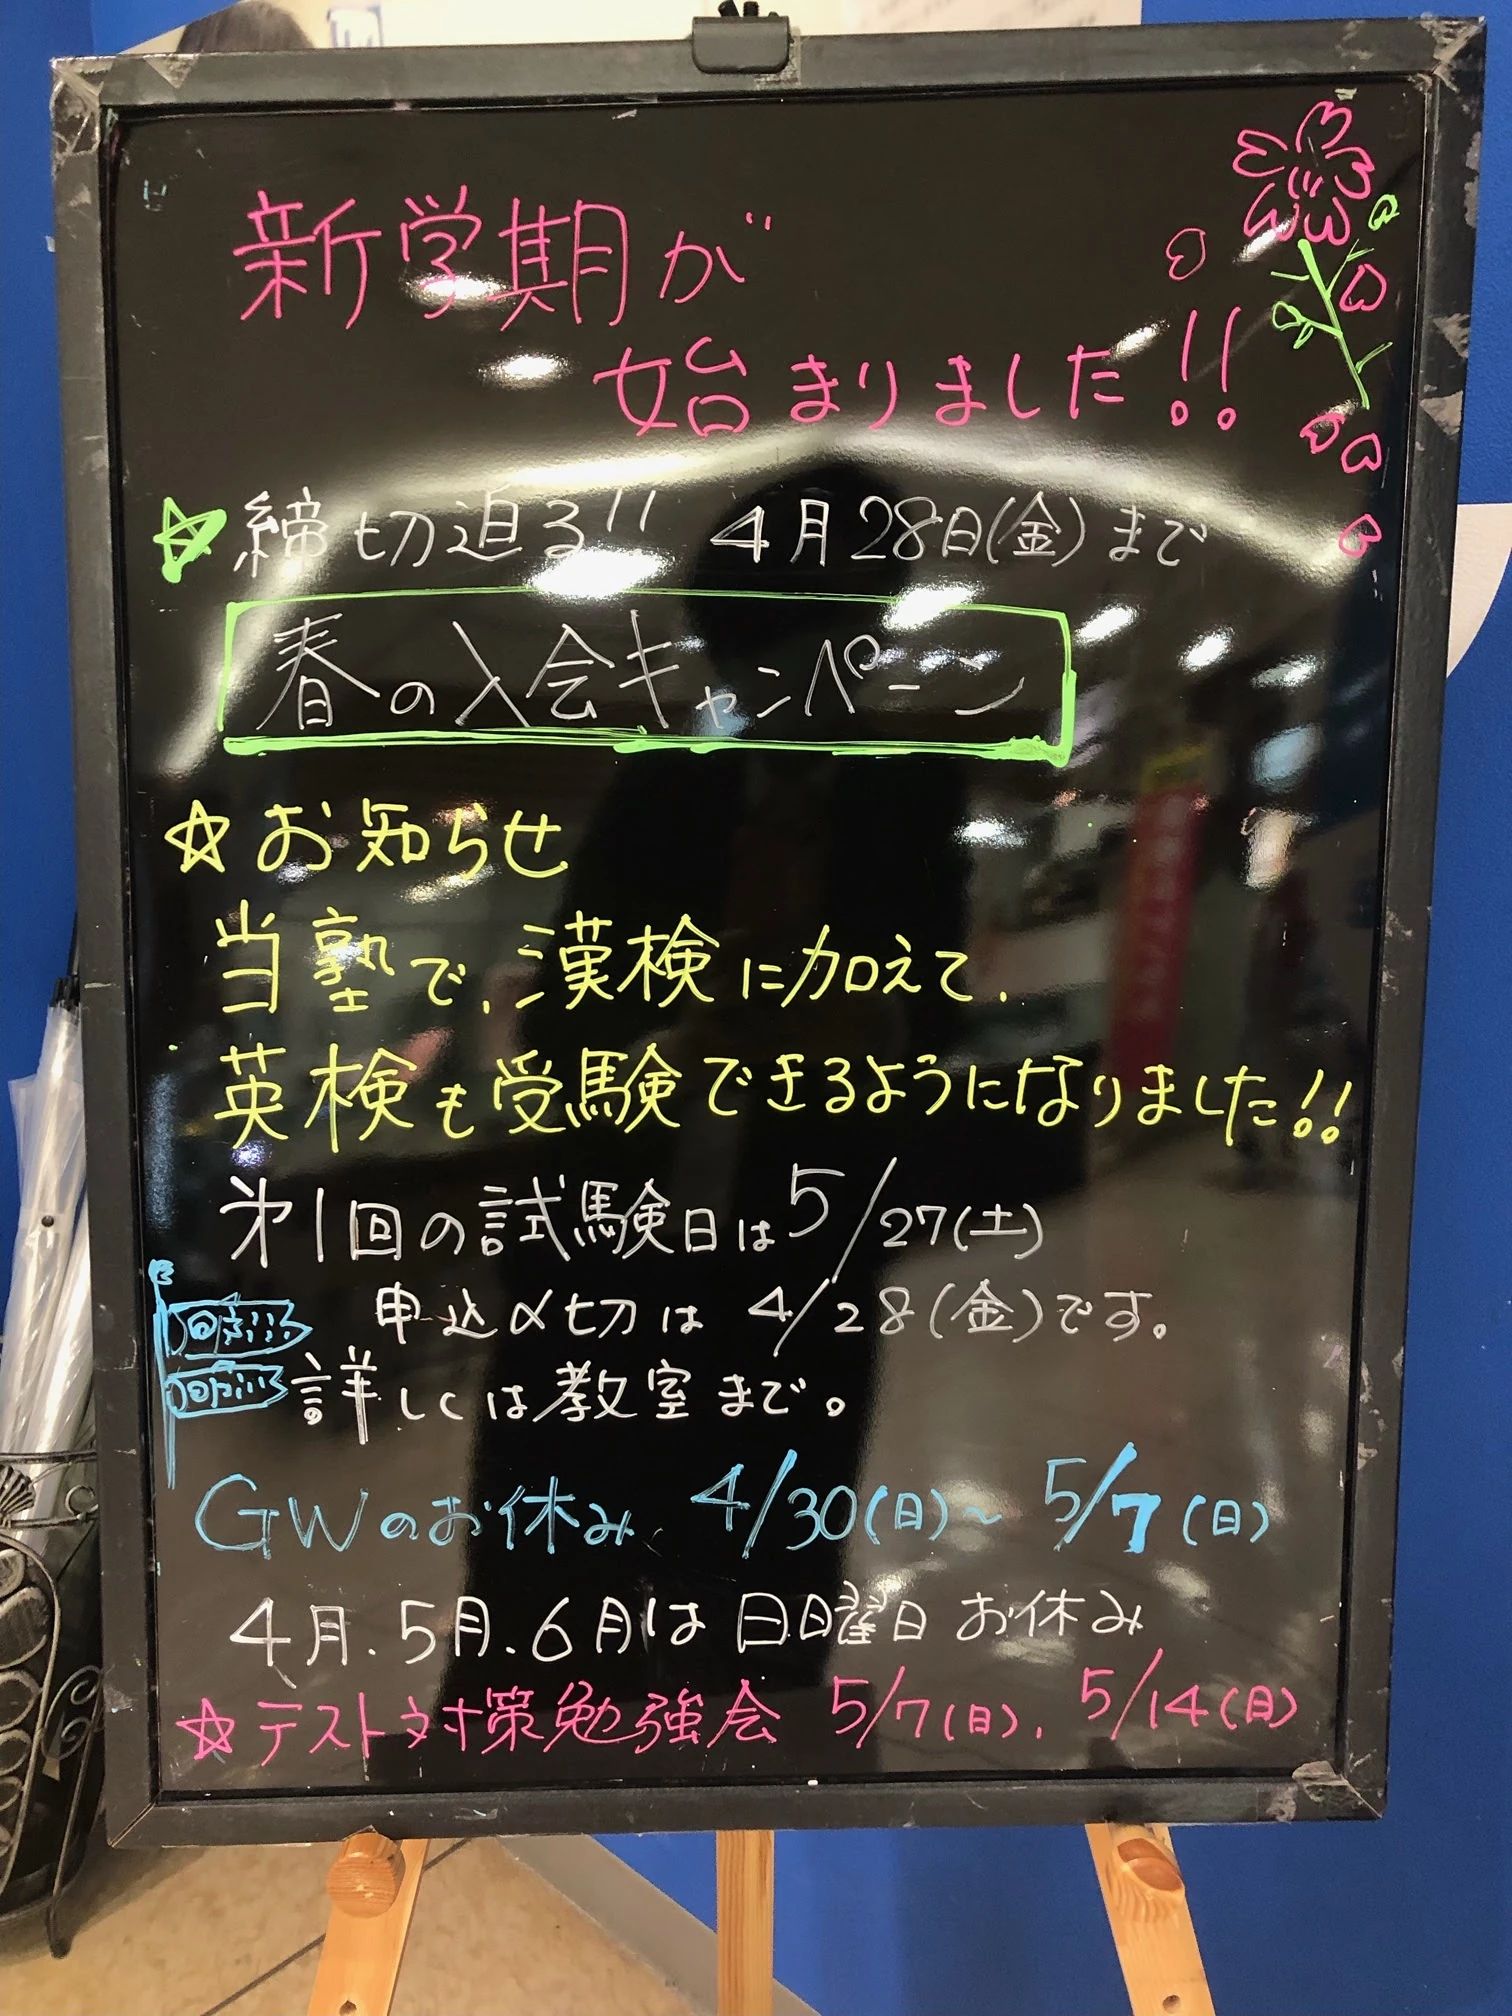 新学期が
始まりました!!
☆締切迫る!! 4月28日(金)まで
春の入会キャンペーン
☆お知らせ
当塾で、漢検に加えて、
英検も受験できるようになりました!!
第1回の試験日は5/27(土)
申込〆切は 4/28(金)です。
詳しくは教室まで。
GWのお休み 4/30(日)~ 5/7(日)
4月.5月.6月は日曜日お休み
☆テスト対策勉強会 5/7(日)、5/14(日)